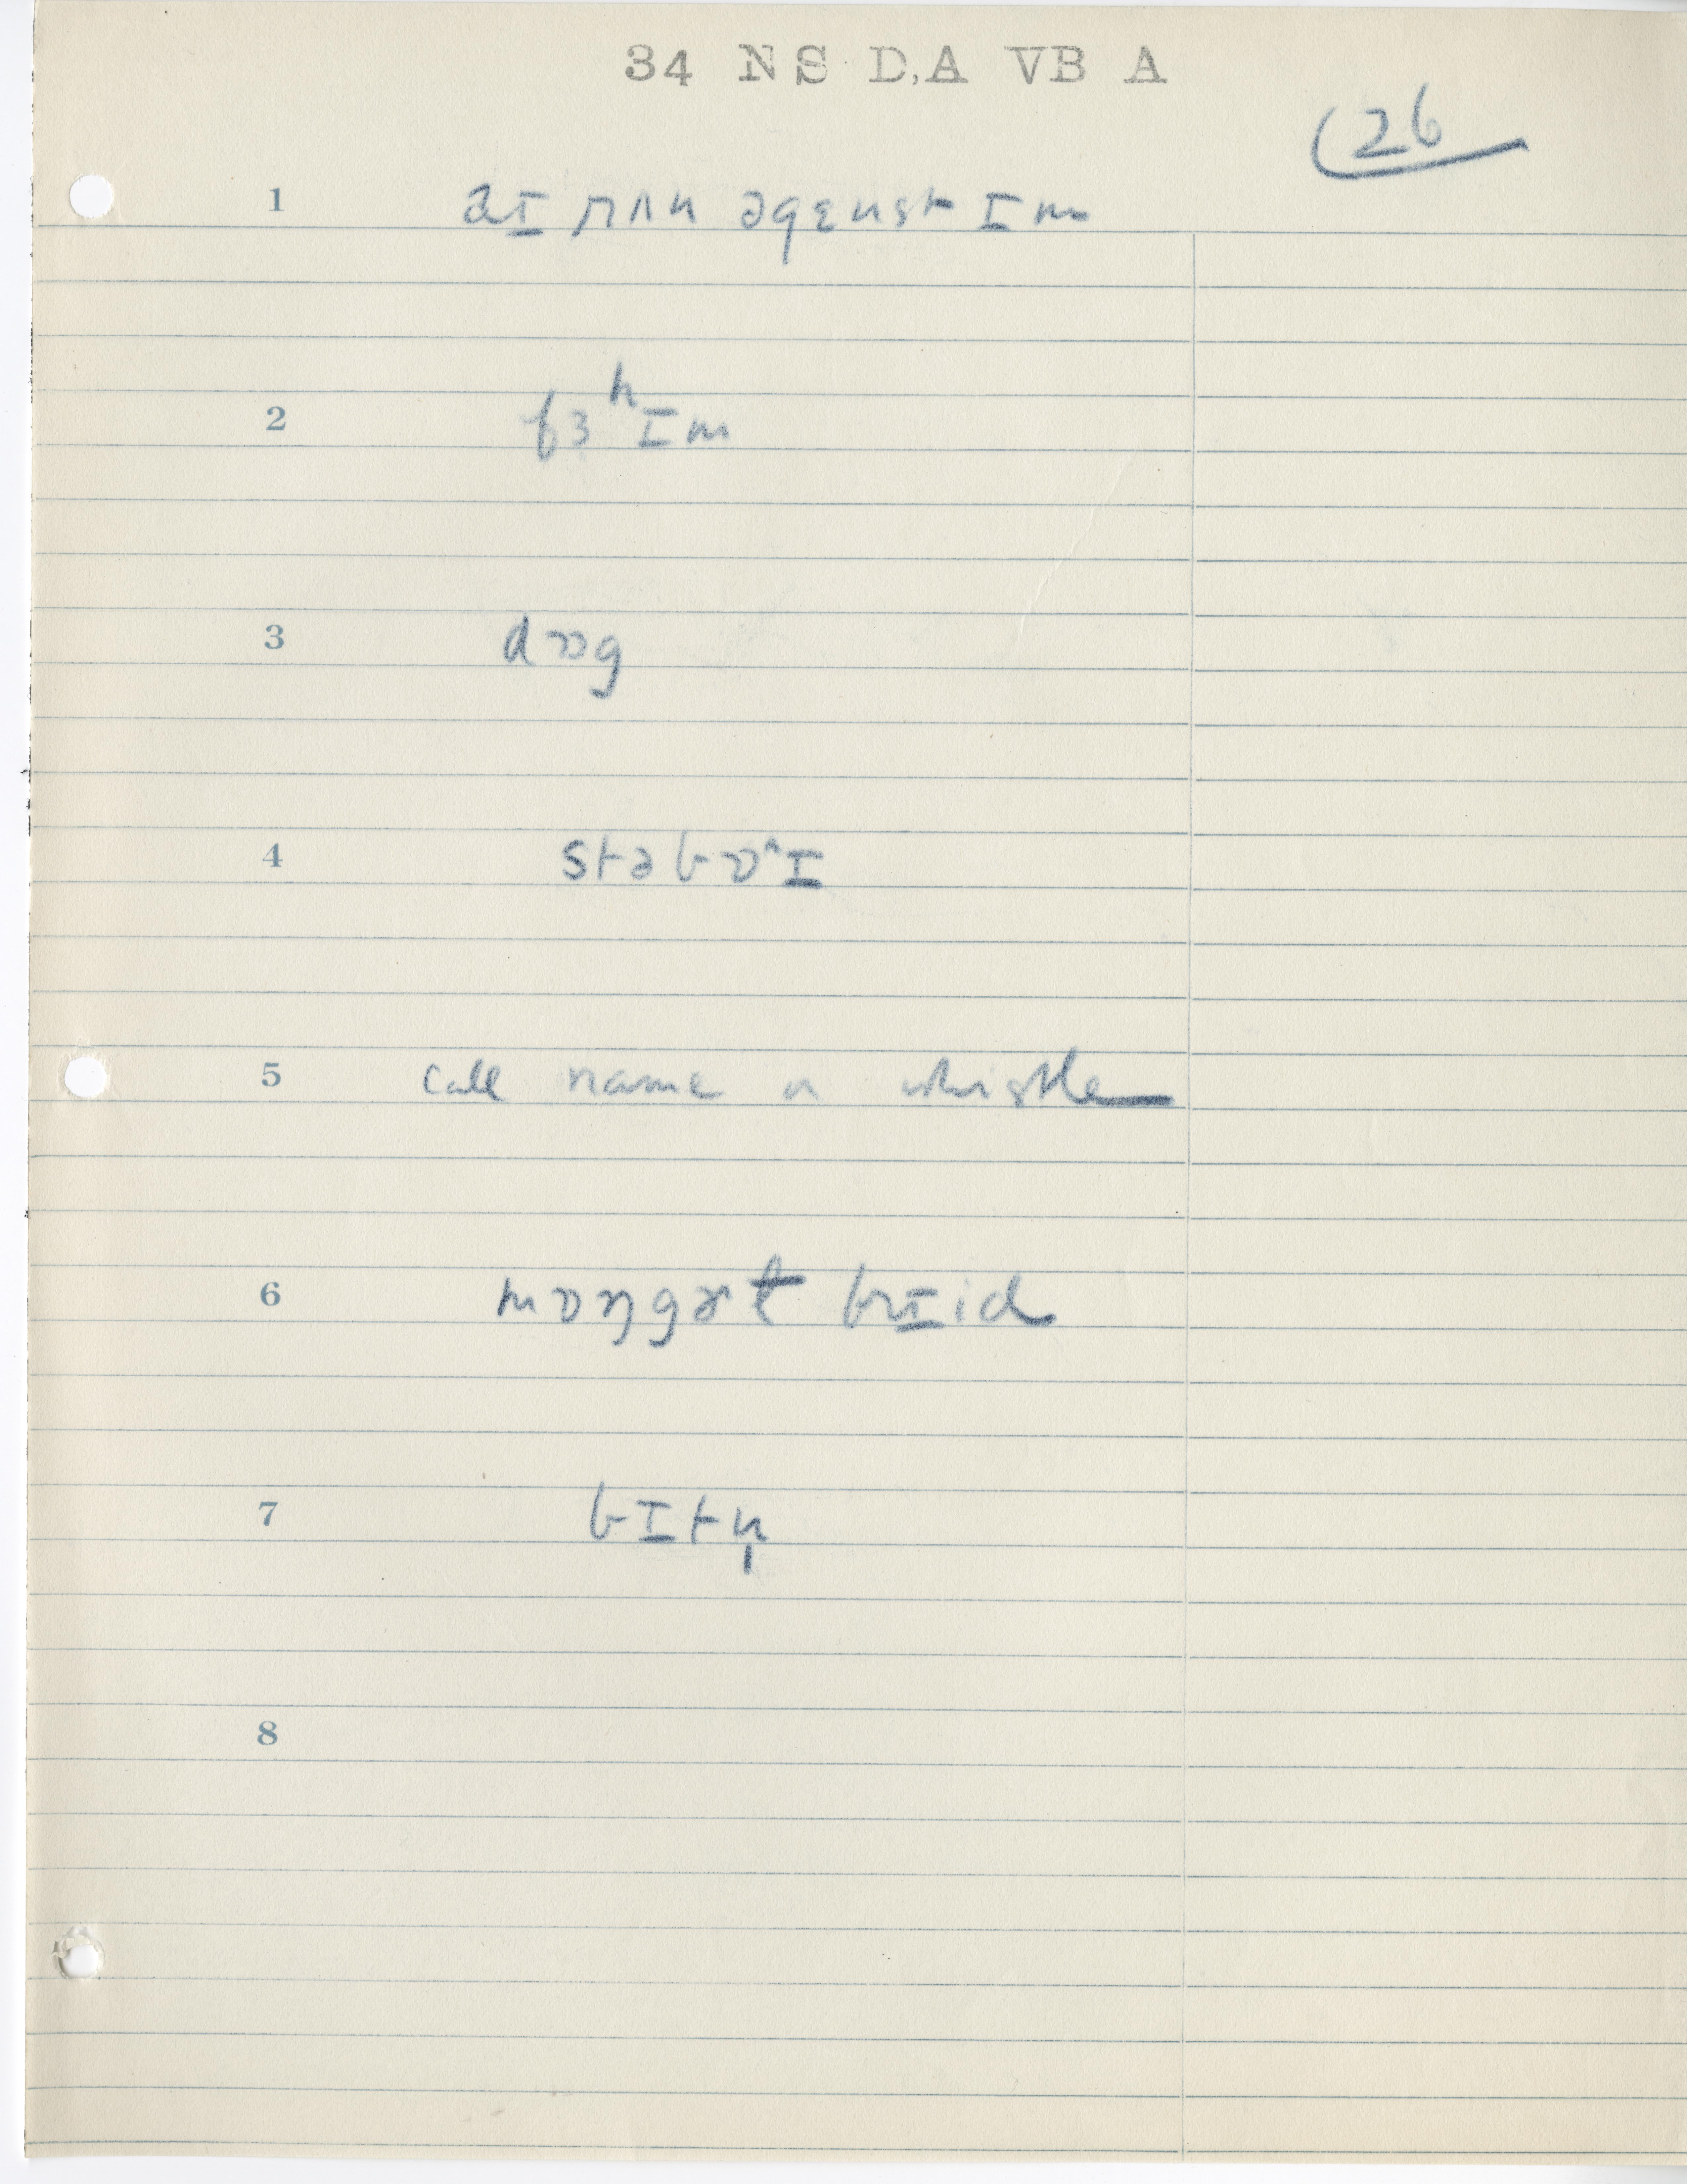 34 NS D,A VB A
26
1 aɪ rʌn əgɛnst ɪm
2 fɜʰɪm
3 dɒg
4 stəbɒ^ɪ
5 call name or whistle
6 mɒŋgɚɫ brɪid
7 bɪtn̩
8